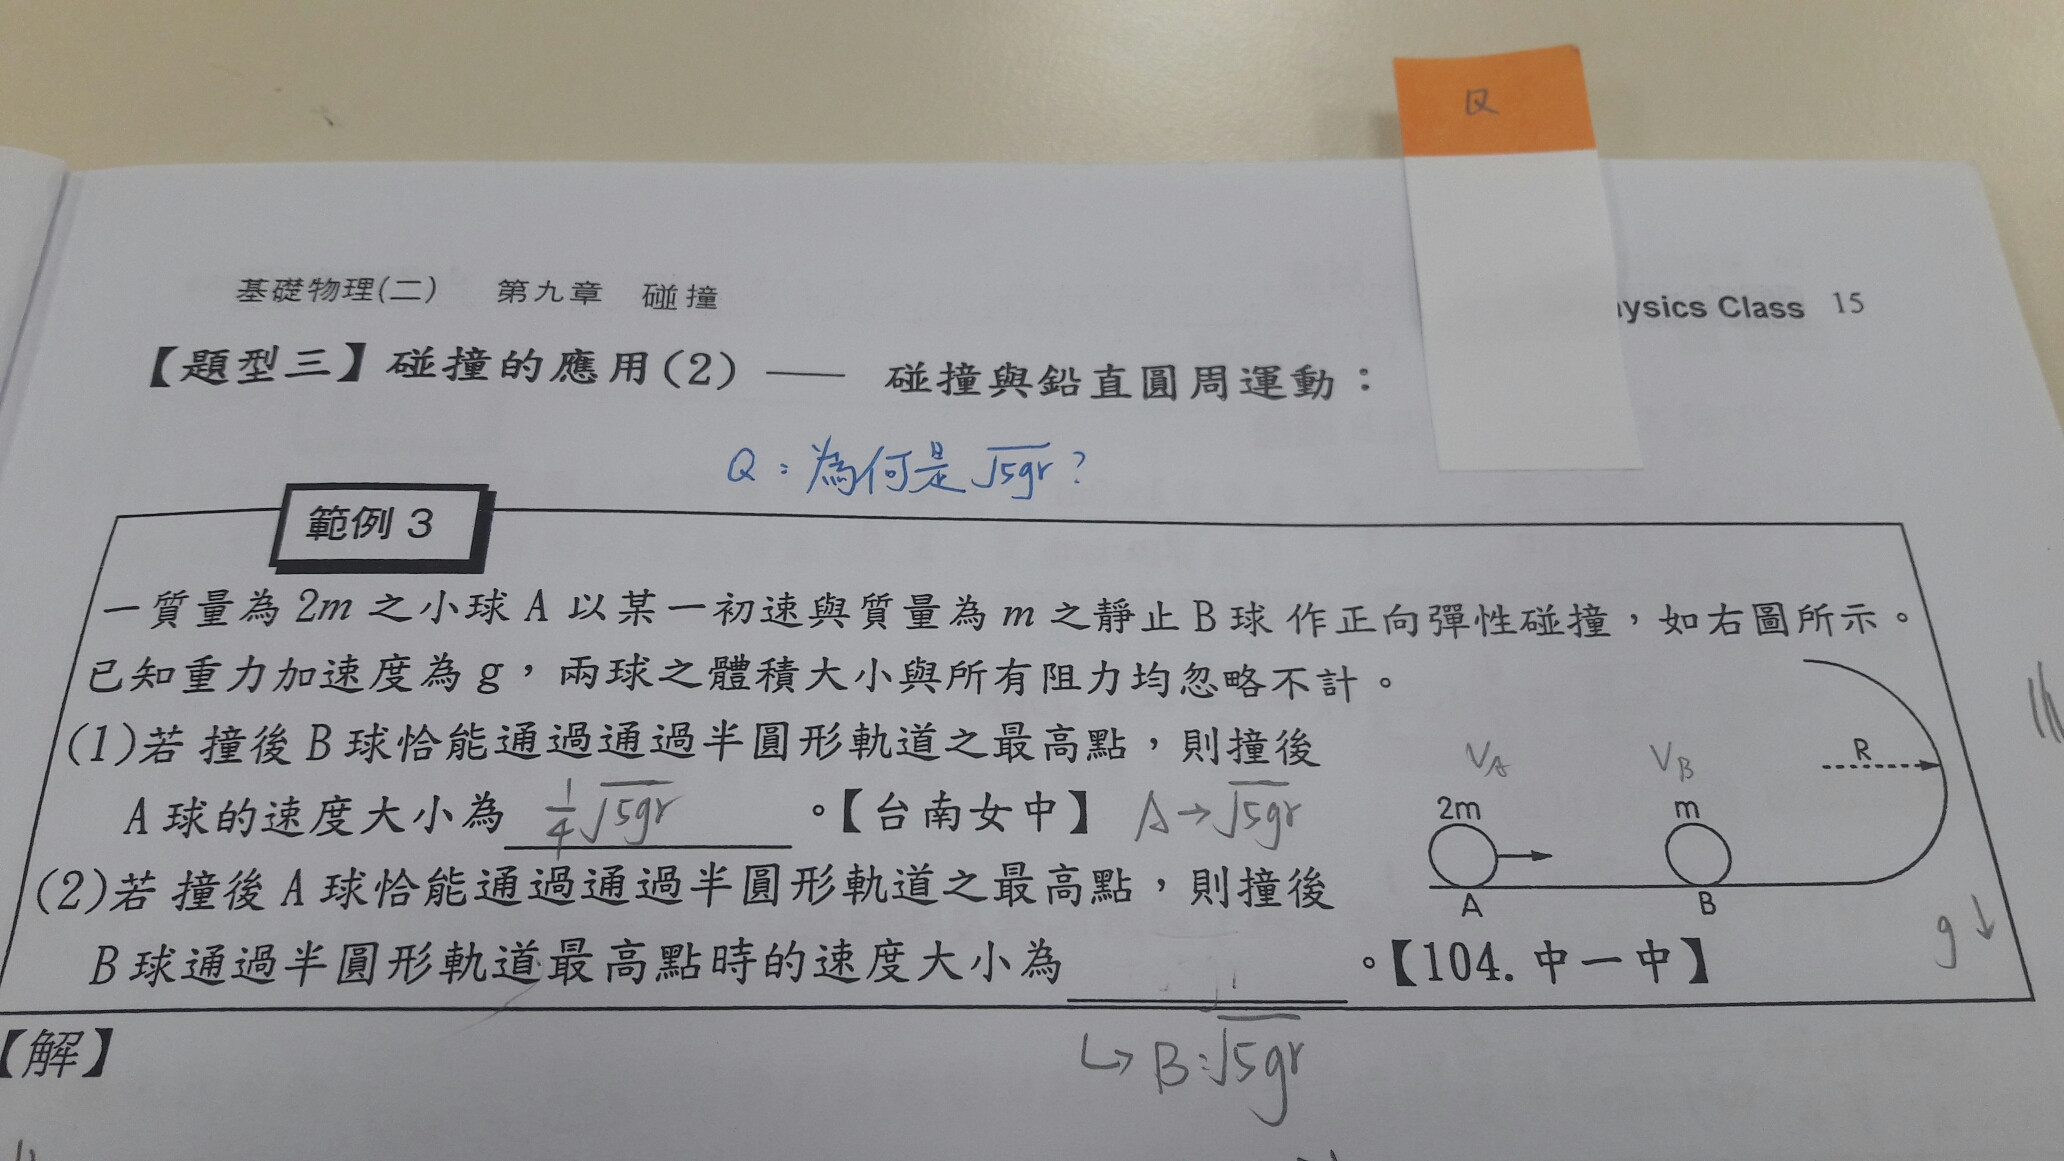 Q
基礎物理(二) 第九章 碰撞
ysics Class 15
【題型三】碰撞的應用(2) —— 碰撞與鉛直圓周運動：
Q：為何是√5gr？
範例 3
一質量為 2m 之小球 A 以某一初速與質量為 m 之靜止 B 球 作正向彈性碰撞，如右圖所示。
已知重力加速度為 g，兩球之體積大小與所有阻力均忽略不計。
(1)若 撞後 B 球恰能通過通過半圓形軌道之最高點，則撞後
A 球的速度大小為 1/4√5gr 。【台南女中】 A→√5gr
(2)若 撞後 A 球恰能通過通過半圓形軌道之最高點，則撞後
B 球通過半圓形軌道最高點時的速度大小為 。【104. 中一中】
VA VB R
2m m
A B
g↓
↳ B:√5gr
【解】